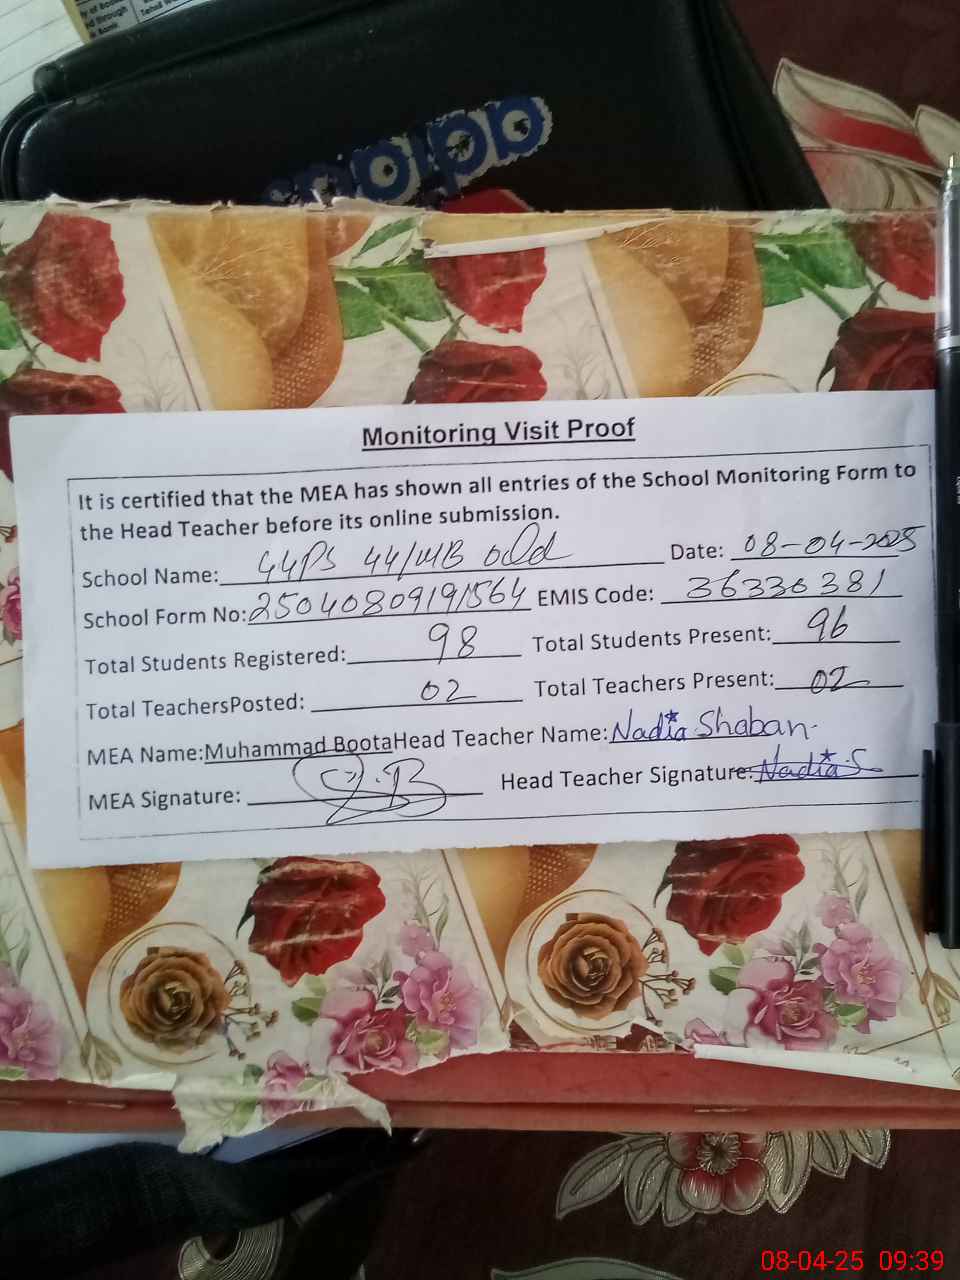 y of Bo
d through
Bank
Tehsil
adidas
Monitoring Visit Proof
It is certified that the MEA has shown all entries of the School Monitoring Form to
the Head Teacher before its online submission.
School Name: GGPS 44/MB old Date: 08-04-2025
School Form No: 25040809191564 EMIS Code: 36330381
Total Students Registered: 98 Total Students Present: 96
Total TeachersPosted: 02 Total Teachers Present: 02
MEA Name: Muhammad Boota Head Teacher Name: Nadia Shaban
MEA Signature: Head Teacher Signature: Nadia S
08-04-25 09:39